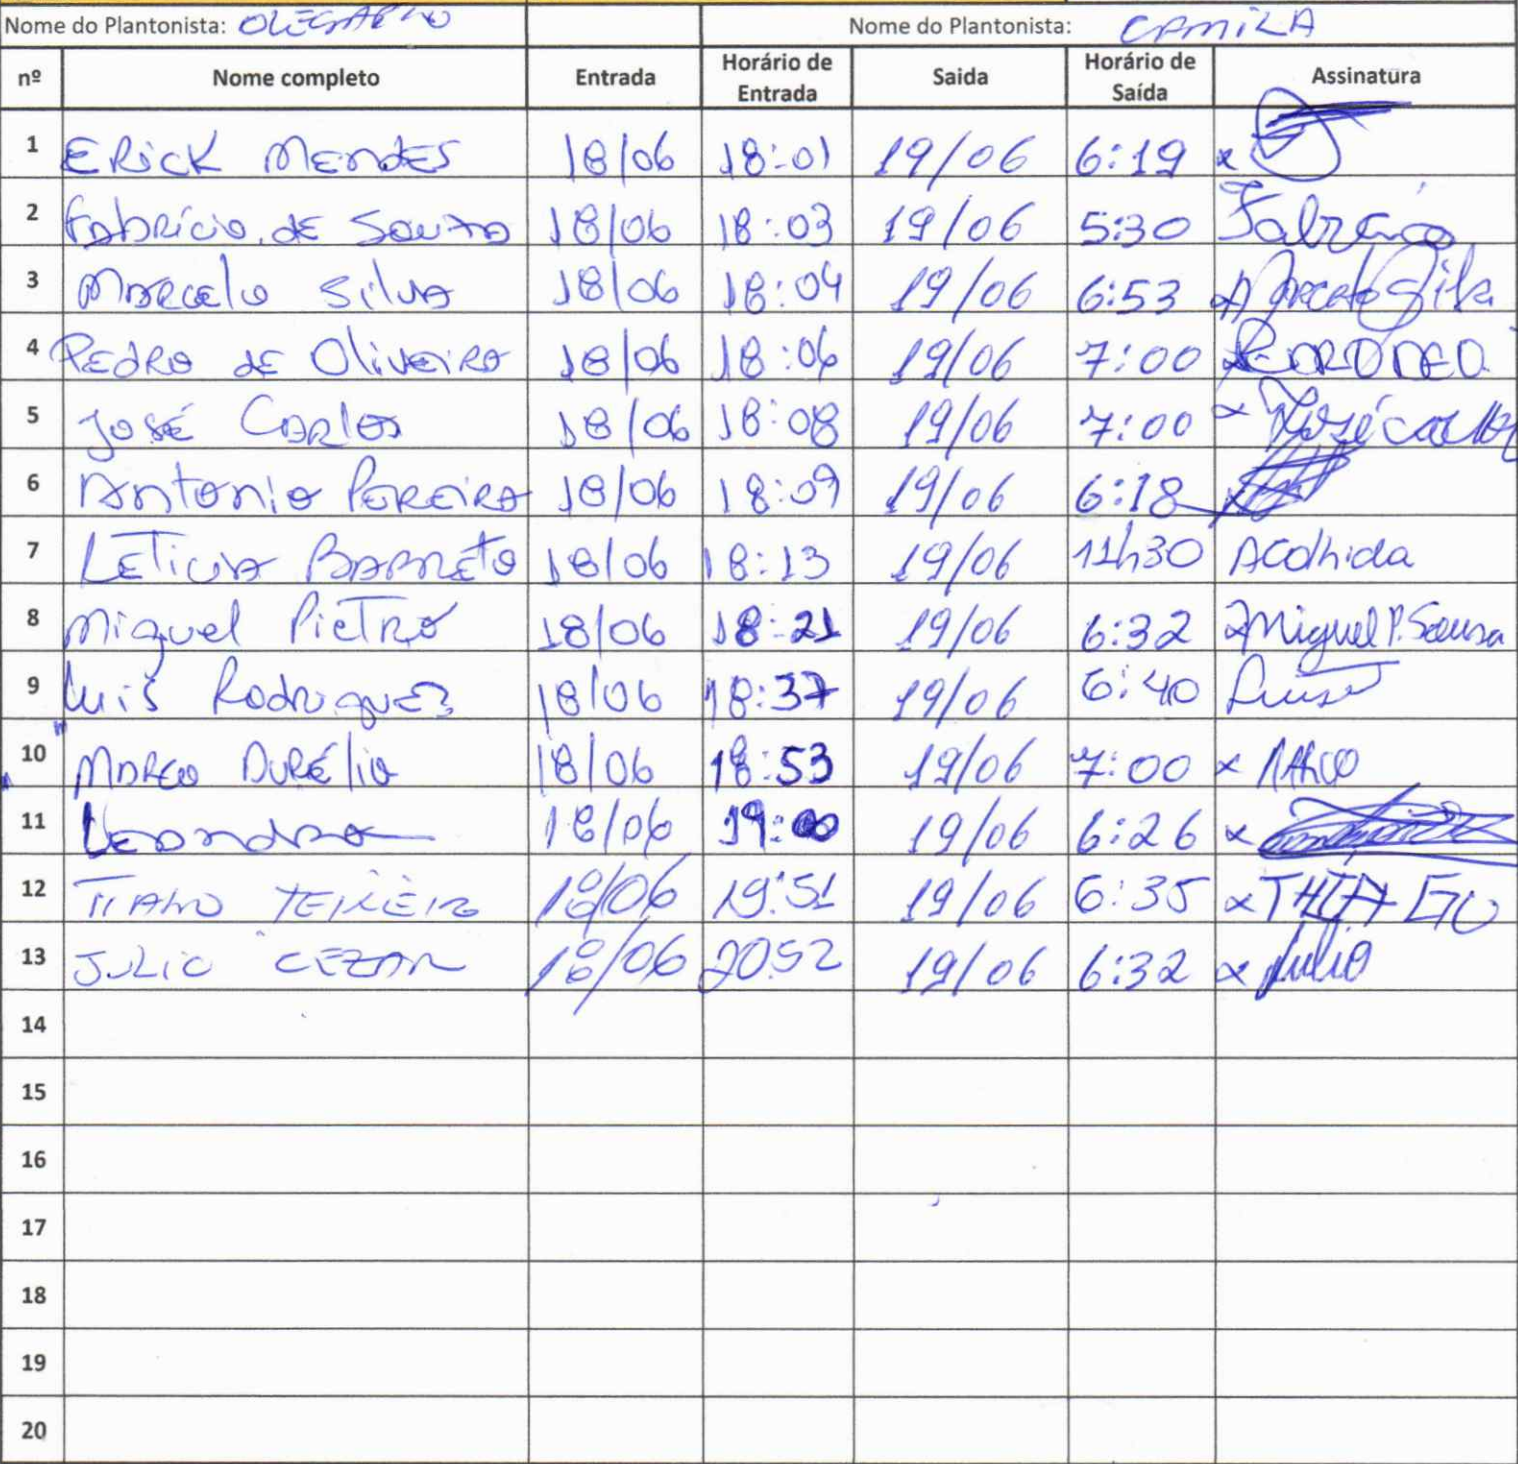 Nome do Plantonista: OLEGARIO Nome do Plantonista: CAMILA
nº Nome completo Entrada Horário de Entrada Saida Horário de Saída Assinatura
1 Erick Mendes 18/06 18:01 19/06 6:19 x
2 Fabrício de Souza 18/06 18:03 19/06 5:30 Fabrício
3 Marcelo Silva 18/06 18:04 19/06 6:53 x Marcelo Silva
4 Pedro de Oliveira 18/06 18:06 19/06 7:00 x
5 José Carlos 18/06 18:08 19/06 7:00 x José Carlos
6 Antonio Pereira 18/06 18:09 19/06 6:18 x
7 Leticia Barreto 18/06 18:13 19/06 11h30 Acolhida
8 Miguel Pietro 18/06 18:21 19/06 6:32 x Miguel P. Sousa
9 Luis Rodriguez 18/06 18:37 19/06 6:40 Luis
10 Marco Aurélio 18/06 18:53 19/06 7:00 x Marco
11 Leandro 18/06 19:00 19/06 6:26 x
12 TIAHO TEIXEIRA 18/06 19:51 19/06 6:35 x
13 JULIO CEZAR 18/06 20:52 19/06 6:32 x Julio
14
15
16
17
18
19
20